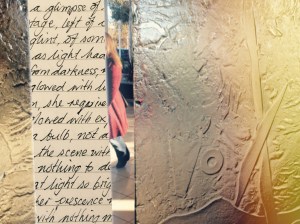 a glimpse of
tage, left of a
glint, of som
as light had
from darkness,
glowed with li
n, she require
lowed with ex
a bulb, not a
the scene with
nothing to d
at light so brig
her prescence
with nothing m